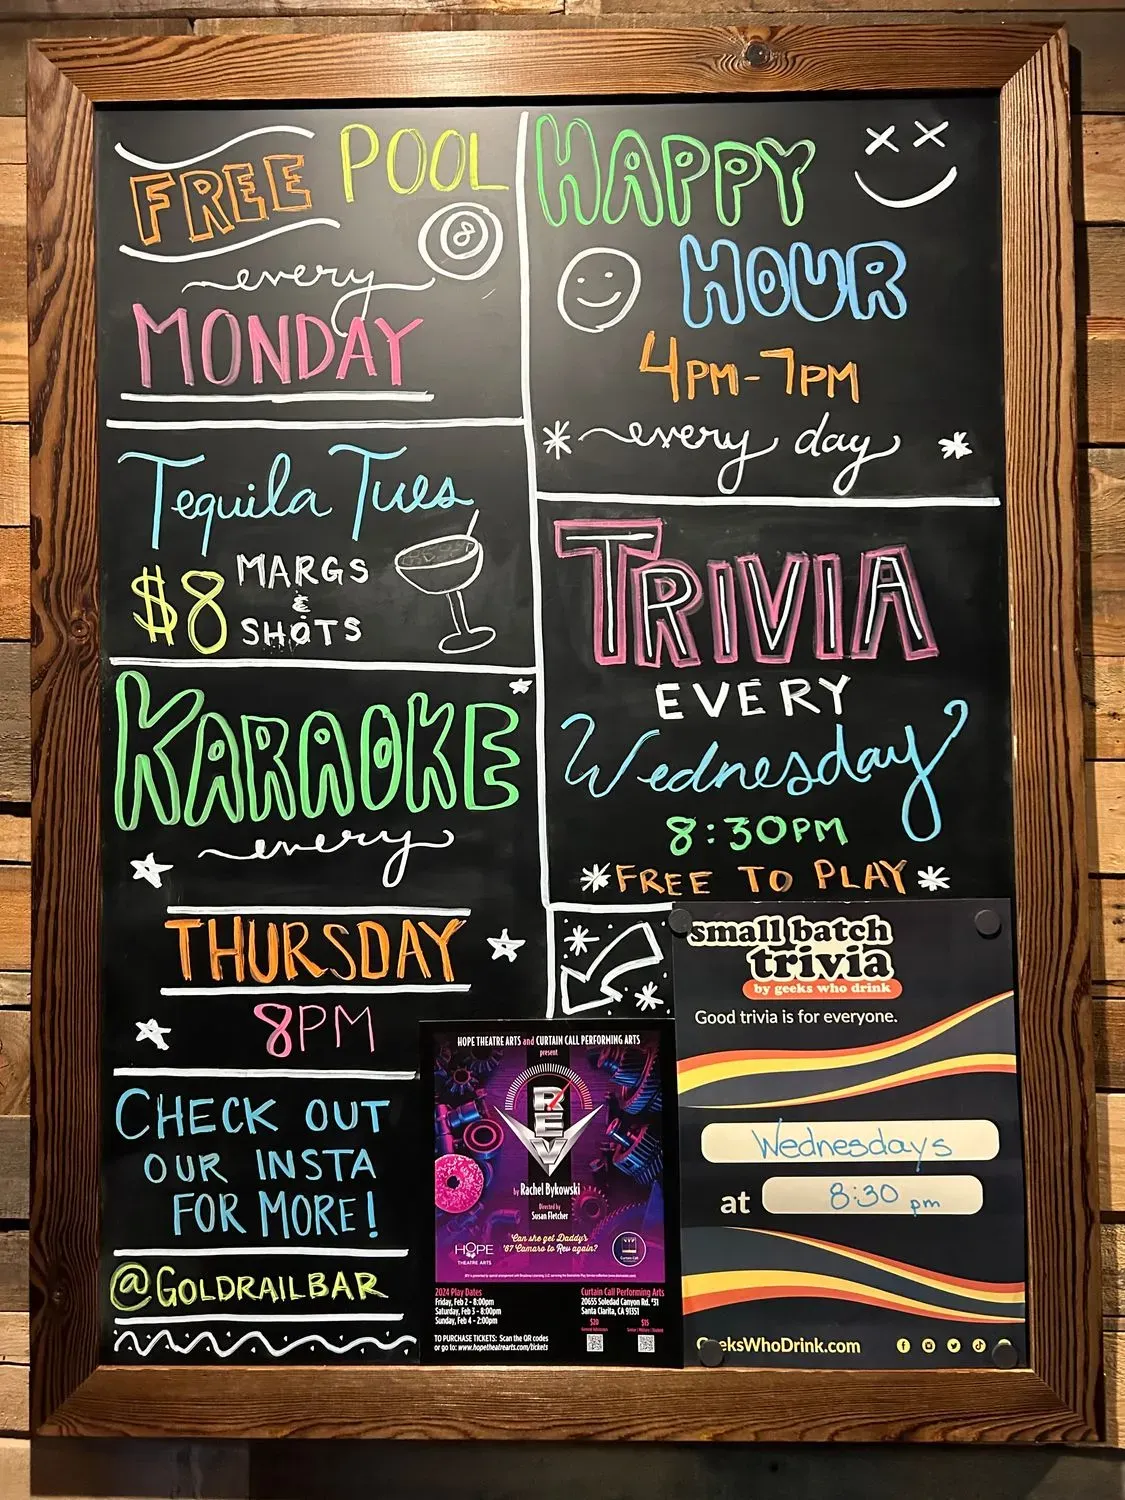 FREE POOL
8
every
MONDAY
Tequila Tues
$8 MARGS
&
SHOTS
KARAOKE
every
THURSDAY
8PM
CHECK OUT
OUR INSTA
FOR MORE!
@GOLDRAILBAR
HAPPY
HOUR
4PM-7PM
every day
TRIVIA
EVERY
Wednesday
8:30PM
FREE TO PLAY
HOPE THEATRE ARTS and CURTAIN CALL PERFORMING ARTS
present
REV
by Rachel Bykowski
Directed by
Susan Fletcher
"Can she get Daddy's
'67 Camaro to Rev again?
HOPE
THEATRE ARTS
2024 Play Dates
Friday, Feb 2 - 8:00pm
Saturday, Feb 3 - 8:00pm
Sunday, Feb 4 - 2:00pm
Curtain Call Performing Arts
20655 Soledad Canyon Rd. #31
Santa Clarita, CA 91351
$20
$15
TO PURCHASE TICKETS: Scan the QR codes
or go to: www.hopetheatrearts.com/tickets
small batch
trivia
by geeks who drink
Good trivia is for everyone.
Wednesdays
at 8:30 pm
eeksWhoDrink.com